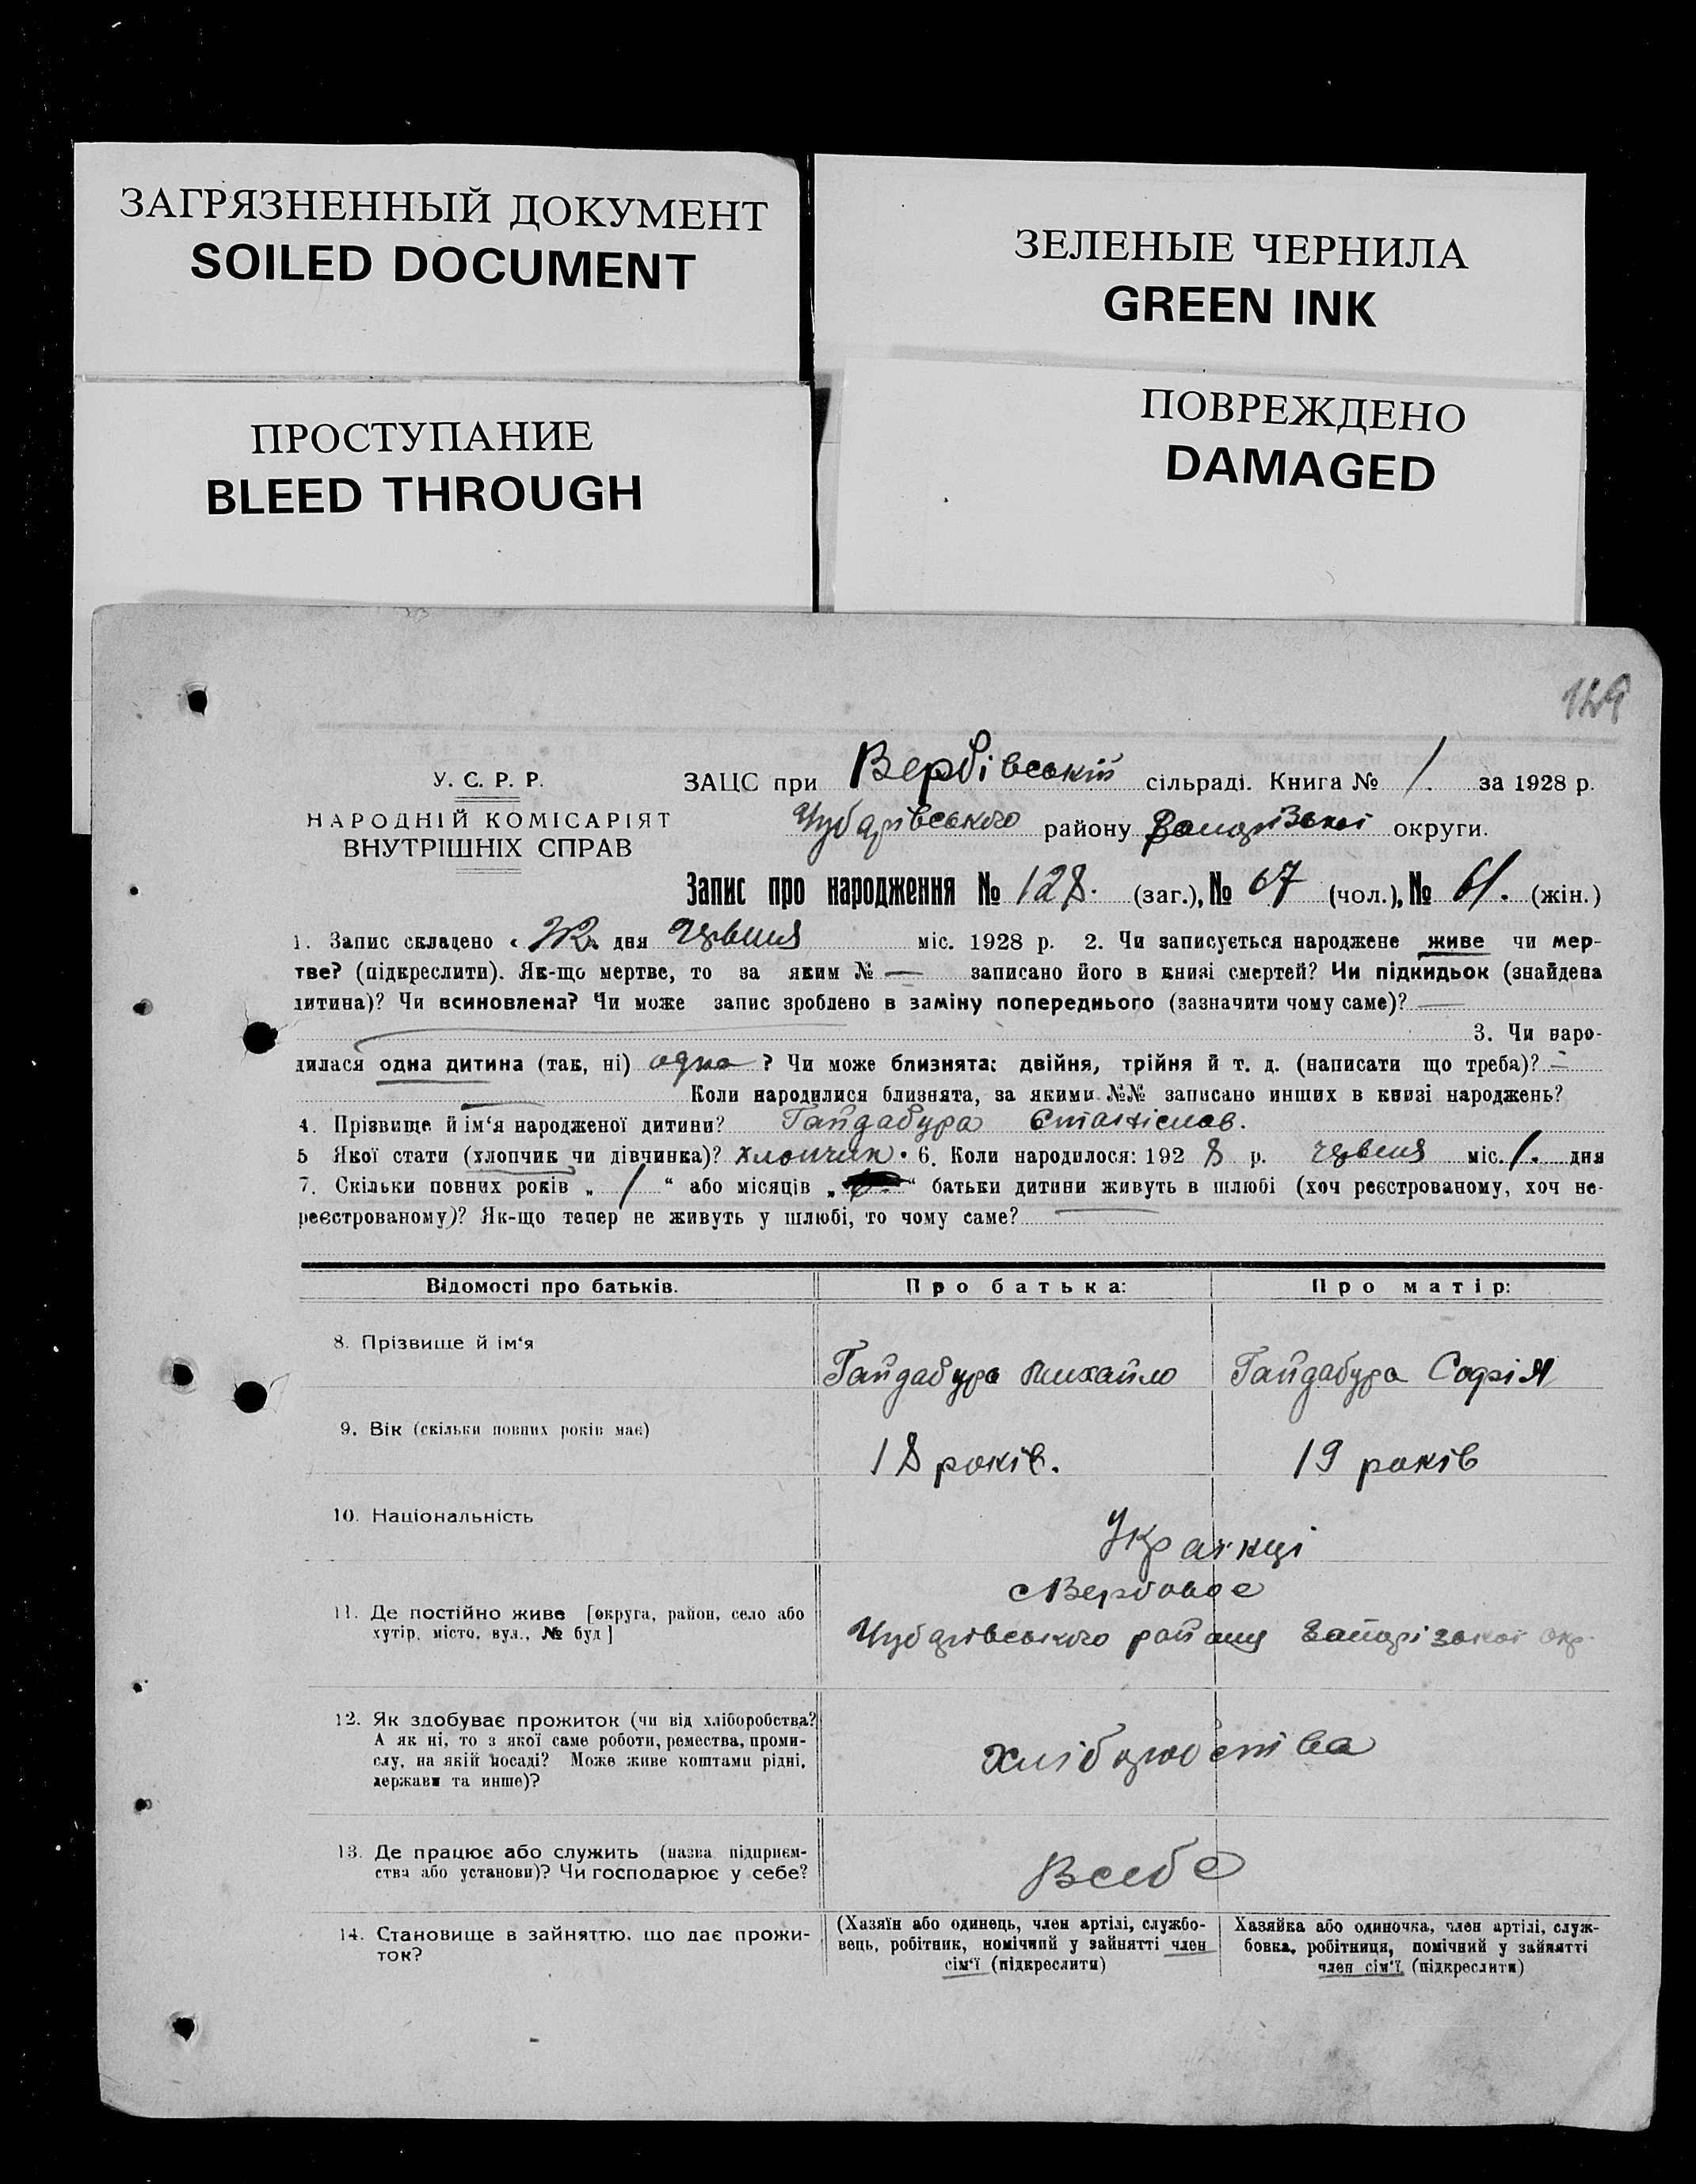 ЗАГРЯЗНЕННЫЙ ДОКУМЕНТ
SOILED DOCUMENT
ЗЕЛЕНЫЕ ЧЕРНИЛА
GREEN INK
ПРОСТУПАНИЕ
BLEED THROUGH
ПОВРЕЖДЕНО
DAMAGED
129
У. С. Р. Р.
НАРОДНІЙ КОМІСАРІЯТ
ВНУТРІШНІХ СПРАВ
ЗАЦС при Вербівській сільраді. Книга № 1. за 1928 р.
Чубарівського району Запорізької округи.
Запис про народження № 128. (заг.), № 67 (чол.), № 61. (жін.)
1. Запис складено « дня червня міс. 1928 р. 2. Чи записується народжене живе чи мер-
тве? (підкреслити). Як-що мертве, то за яким № — записано його в книзі смертей? Чи підкидьок (знайдена
дитина)? Чи всиновлена? Чи може запис зроблено в заміну попереднього (зазначити чому саме)? —
3. Чи наро-
дилася одна дитина (так, ні) одна ? Чи може близнята: двійня, трійня й т. д. (написати що треба)? —
Коли народилися близнята, за якими №№ записано инших в книзі народжень?
4. Прізвище й ім‘я народженої дитини? Гайдабура Станіслав.
5 Якої стати (хлопчик чи дівчинка)? хлопчик. 6. Коли народилося: 1928 р. червня міс. 1. дня
7. Скільки повних років „ 1 “ або місяців „ “ батьки дитини живуть в шлюбі (хоч реєстрованому, хоч не-
реєстрованому)? Як-що тепер не живуть у шлюбі, то чому саме? —
Відомості про батьків. Про батька: Про матір:
8. Прізвище й ім‘я Гайдабура Михайло Гайдабура Софія
9. Вік (скільки повних років має) 18 років. 19 років
10. Національність Українці
с Вербове
11. Де постійно живе [округа, район, село або
хутір, місто, вул., № буд ] Чубарівського району Запорізької окр.
12. Як здобуває прожиток (чи від хліборобства?
А як ні, то з якої саме роботи, ремества, проми-
слу, на якій посаді? Може живе коштами рідні,
держави та инше)? Хліборобства
13. Де працює або служить (назва підприєм-
ства або установи)? Чи господарює у себе? В себе
14. Становище в зайняттю, що дає прожи-
ток?
(Хазяїн або одинець, член артілі, службо-
вець, робітник, помічний у зайнятті член
сім‘ї (підкреслити)
Хазяйка або одиночка, член артілі, служ-
бовка, робітниця, помічний у зайнятті
член сім‘ї (підкреслити)